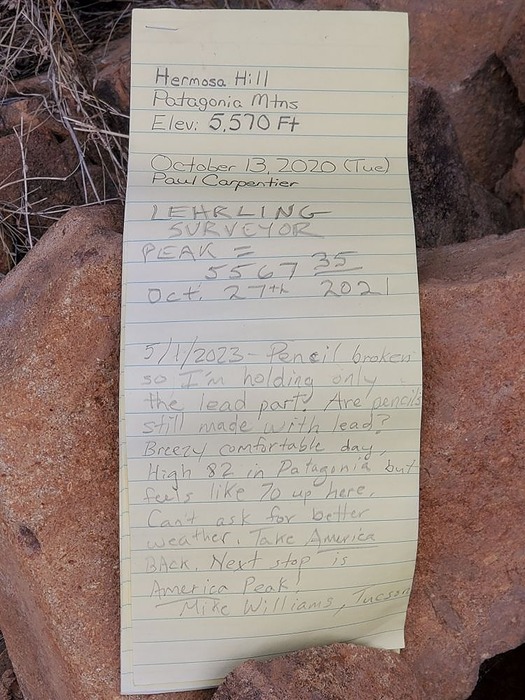 Hermosa Hill
Patagonia Mtns
Elev: 5,570 Ft
October 13, 2020 (Tue)
Paul Carpentier
LEHRLING
SURVEYOR
PEAK =
5567 35
Oct. 27th 2021
5/1/2023 - Pencil broken
so I'm holding only
the lead part. Are pencils
still made with lead?
Breezy comfortable day,
High 82 in Patagonia but
feels like 70 up here.
Can't ask for better
weather. Take America
BAck. Next stop is
America Peak!
Mike Williams, Tucson